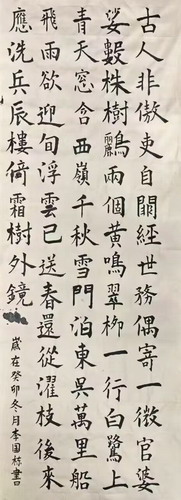 古人非傲吏自闕經世務偶寄一微官婆
娑數株樹兩個黃鳴翠柳一行白鷺上
青天窓含西嶺千秋雪門泊東吳萬里船
飛雨欲迎旬浮雲已送春還從濯枝後來
應洗兵辰樓倚霜樹外鏡
歲在癸卯冬月李国标書